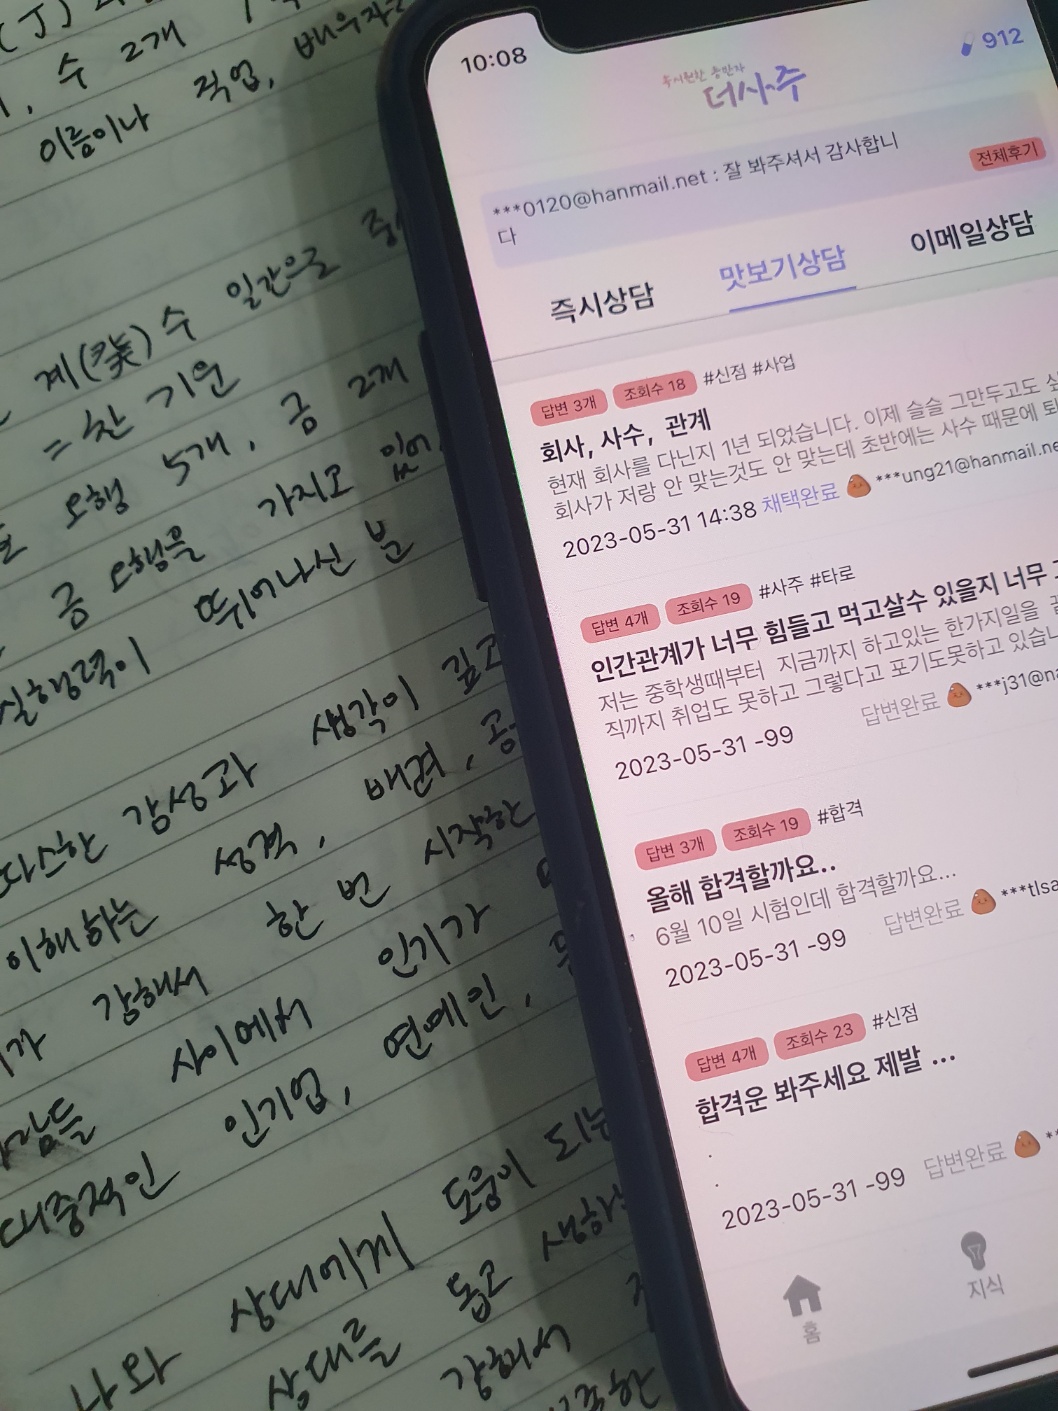 수 2개
이름이나 직업, 배우자
계(癸)수 일간으로
= 찬 기운
오행 5개, 금 2개
금 오행을 가지고 있어
실행력이 뛰어나신 분
따스한 감성과 생각이 깊고
이해하는 성격, 배려, 공
강해서 한 번 시작한
사이에서 인기가
대중적인 인기업, 연예인,
나와 상대에게 도움이 되는
상대를 돕고 생하
강해서
10:08
912
속시원한 종만자
더사주
***0120@hanmail.net : 잘 봐주셔서 감사합니
다
전체후기
즉시상담 맛보기상담 이메일상담
답변 3개 조회수 18 #신점 #사업
회사, 사수, 관계
현재 회사를 다닌지 1년 되었습니다. 이제 슬슬 그만두고도
회사가 저랑 안 맞는것도 안 맞는데 초반에는 사수 때문에
2023-05-31 14:38 채택완료 ***ung21@hanmail.ne
답변 4개 조회수 19 #사주 #타로
인간관계가 너무 힘들고 먹고살수 있을지 너무
저는 중학생때부터 지금까지 하고있는 한가지일을
직까지 취업도 못하고 그렇다고 포기도못하고 있습니
2023-05-31 -99 답변완료 ***j31@na
답변 3개 조회수 19 #합격
올해 합격할까요..
6월 10일 시험인데 합격할까요...
2023-05-31 -99 답변완료 ***tlsa
답변 4개 조회수 23 #신점
합격운 봐주세요 제발 ...
.
.
2023-05-31 -99 답변완료 **
홈 지식